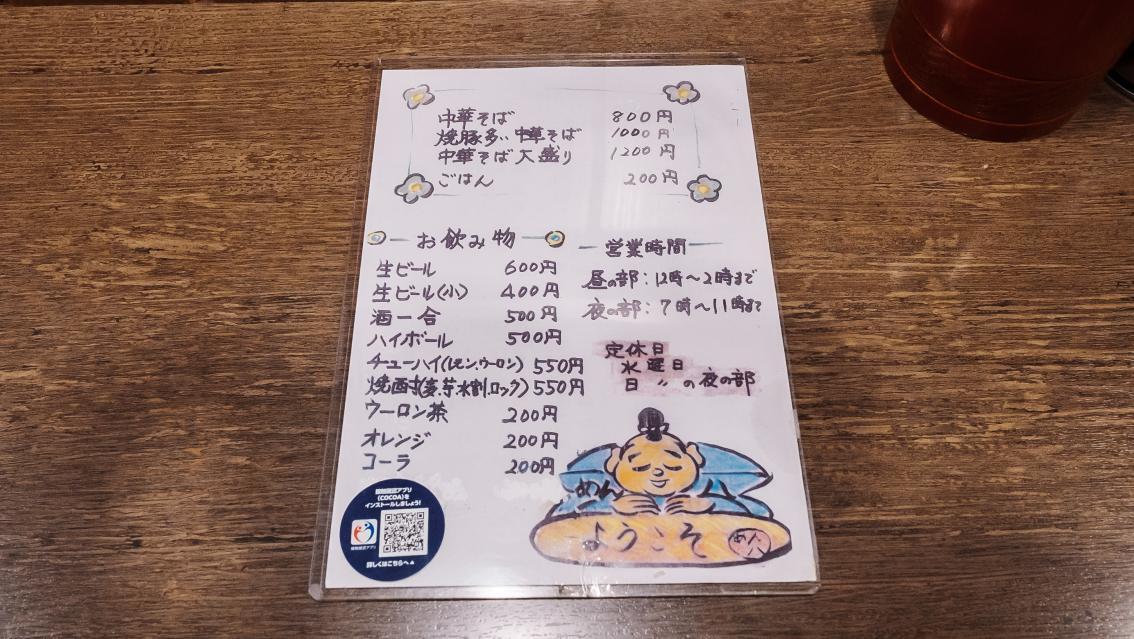 中華そば 800円
焼豚多い中華そば 1000円
中華そば大盛り 1200円
ごはん 200円
お飲み物
生ビール 600円
生ビール(小) 400円
酒一合 500円
ハイボール 500円
チューハイ(レモン.ウーロン) 550円
焼酎(麦.芋.水割.ロック) 550円
ウーロン茶 200円
オレンジ 200円
コーラ 200円
営業時間
昼の部:12時〜2時まで
夜の部:7時〜11時まで
定休日
水曜日
日〃の夜の部
めん
ようこそ
めん八
接触確認アプリ
(COCOA)を
インストールしましょう!
接触確認アプリ
詳しくはこちらへ▲